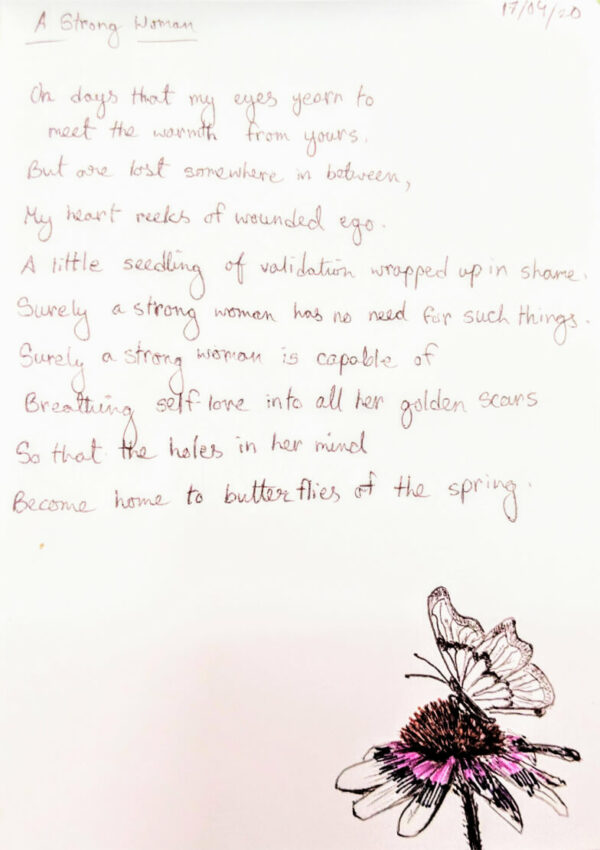 A Strong Woman
17/04/20
On days that my eyes yearn to
meet the warmth from yours.
But are lost somewhere in between,
My heart reeks of wounded ego.
A little seedling of validation wrapped up in shame.
Surely a strong woman has no need for such things.
Surely a strong woman is capable of
Breathing self-love into all her golden scars
So that the holes in her mind
Become home to butterflies of the spring.